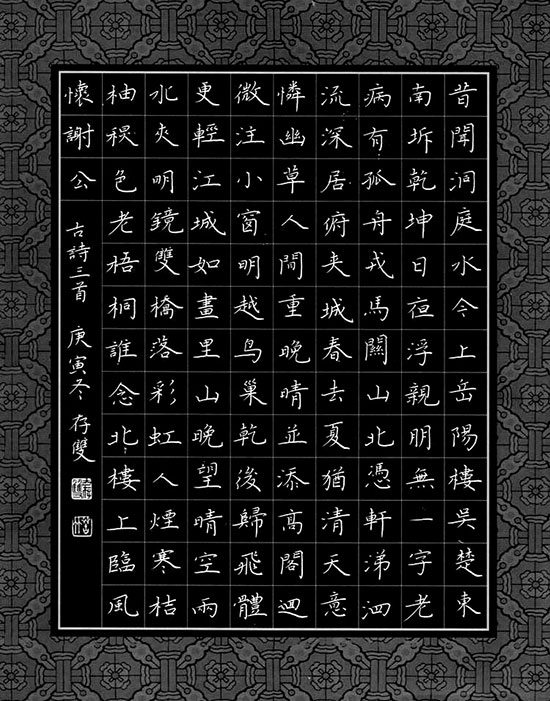 昔聞洞庭水今上岳陽樓吳楚東
南坼乾坤日夜浮親朋無一字老
病有孤舟戎馬關山北憑軒涕泗
流深居俯夾城春去夏猶清天意
憐幽草人間重晚晴並添高閣迥
微注小窗明越鸟巢乾後歸飛體
更輕江城如畫里山晚望晴空雨
水夾明鏡雙橋落彩虹人煙寒桔
柚秋色老梧桐誰念北樓上臨風
懷謝公 古詩三首 庚寅冬 存雙